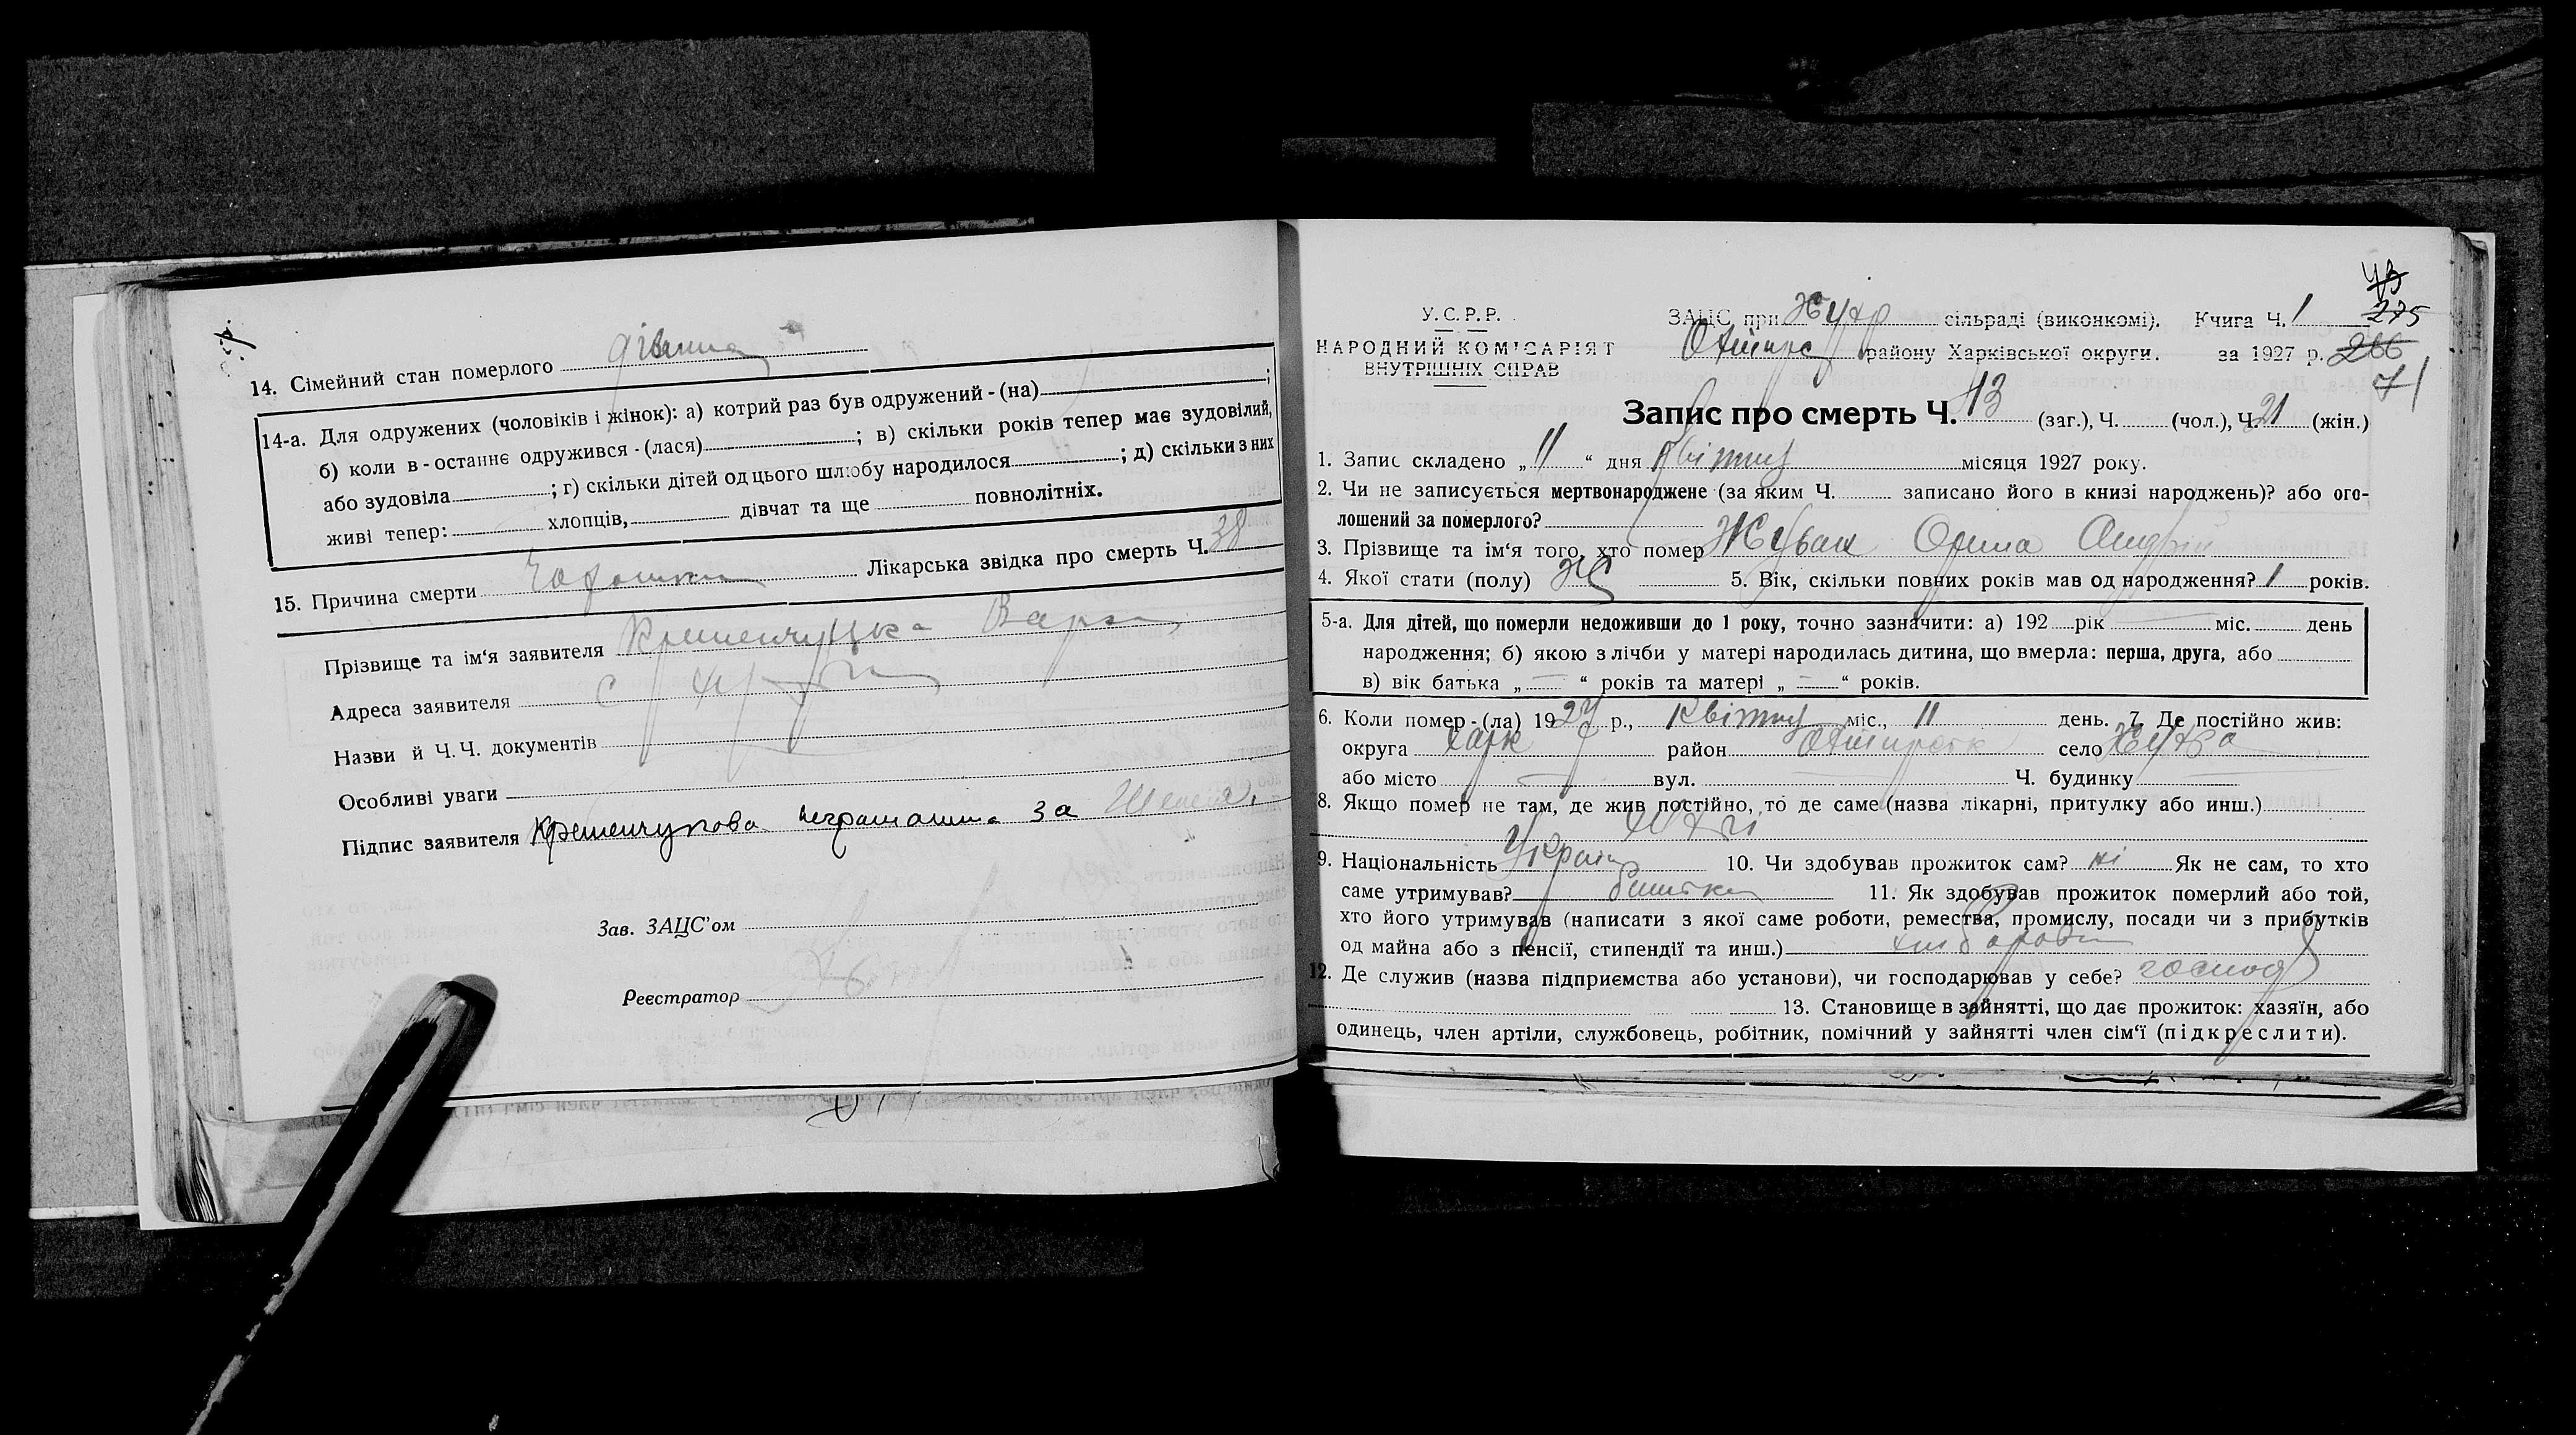 14. Сімейний стан померлого дівчина
14-а. Для одружених (чоловіків і жінок): а) котрий раз був одружений - (на) ;
б) коли в - останнє одружився - (лася) ; в) скільки років тепер має зудовілий,
або зудовіла ; г) скільки дітей од цього шлюбу народилося ; д) скільки з них
живі тепер: хлопців, дівчат та ще повнолітніх.
15. Причина смерти Лікарська звідка про смерть Ч. 38
Прізвище та ім'я заявителя Кременчуцька
Адреса заявителя с
Назви й Ч.Ч. документів
Особливі уваги
Підпис заявителя Кременчукова неграмотна за
Зав. ЗАЦС'ом
Реєстратор
У.С.Р.Р.
НАРОДНИЙ КОМІСАРІЯТ
ВНУТРІШНІХ СПРАВ
ЗАЦС при сільраді (виконкомі). Книга Ч. 1
району Харківської округи. за 1927 р.
43
275
266
71
Запис про смерть Ч. 43 (заг.), Ч. (чол.), Ч. 21 (жін.)
1. Запис складено „ 11 “ дня Квітня місяця 1927 року.
2. Чи не записується мертвонароджене (за яким Ч. записано його в книзі народжень)? або ого-
лошений за померлого?
3. Прізвище та ім'я того, хто помер Жуван Орина Андрій
4. Якої стати (полу) Ж 5. Вік, скільки повних років мав од народження? 1 років.
5-а. Для дітей, що померли недоживши до 1 року, точно зазначити: а) 192 рік міс. день
народження; б) якою з лічби у матері народилась дитина, що вмерла: перша, друга, або
в) вік батька „ — “ років та матері „ — “ років.
6. Коли помер - (ла) 1927 р., Квітня міс., 11 день. 7. Де постійно жив:
округа Харк район село
або місто — вул. — Ч. будинку —
8. Якщо помер не там, де жив постійно, то де саме (назва лікарні, притулку або инш.)
9. Національність Україн 10. Чи здобував прожиток сам? ні Як не сам, то хто
саме утримував? батьки 11. Як здобував прожиток померлий або той,
хто його утримував (написати з якої саме роботи, ремества, промислу, посади чи з прибутків
од майна або з пенсії, стипендії та инш.)
12. Де служив (назва підприємства або установи), чи господарював у себе? господ
13. Становище в зайнятті, що дає прожиток: хазяїн, або
одинець, член артіли, службовець, робітник, помічний у зайнятті член сім'ї (підкреслити).